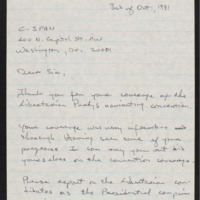 3rd of Oct., 1991
C-SPAN
400 N. Capitol St. NW
Washington, DC. 20001
Dear Sir,
Thank you for your coverage of the
Libertarian Party's nominating convention.
Your coverage was very informative and
seen some of your
programs I can only
yourselves on the convention coverage.
Please report on the Libertarian
as the Presidential campaign